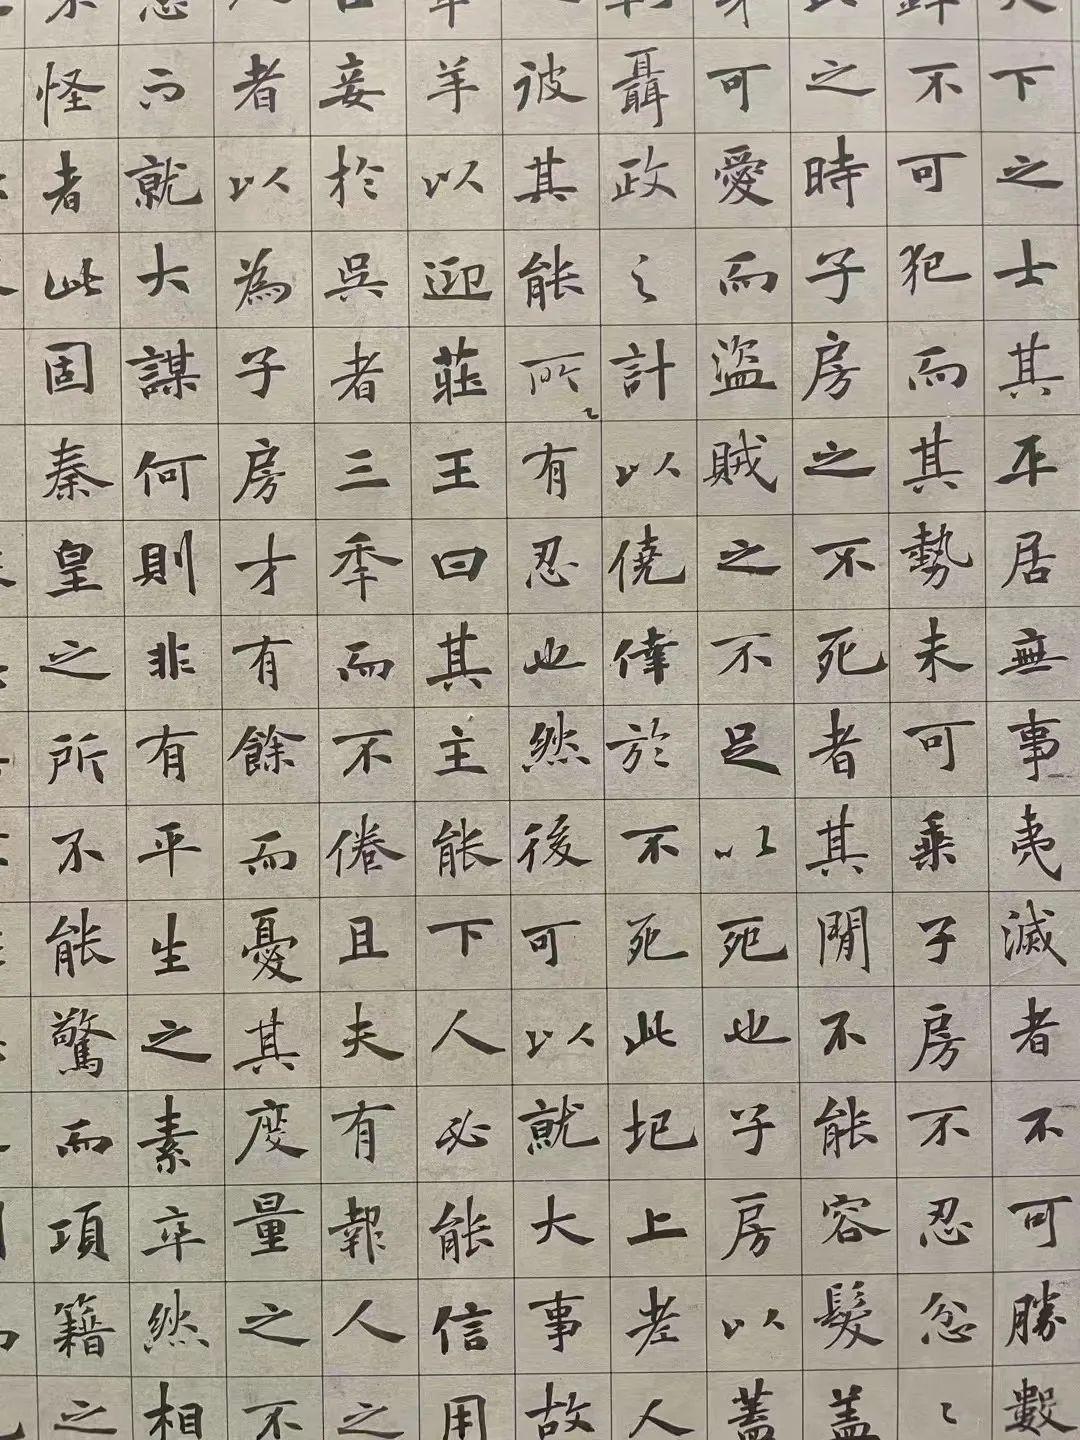 下之士其平居無事夷滅者不可勝數
不可犯而其勢未可乘子房不忍忿〻
之時子房之不死者其間不能容髮蓋
可愛而盜賊之不足以死也子房以蓋
聶政之計以僥倖於不死此圯上老人
彼其能所〻有忍也然後可以就大事故
羊以迎莊王曰其主能下人必能信用
妾於吳者三秊而不倦且夫有報人之
者以為子房才有餘而憂其度量之不
而就大謀何則非有平生之素卒然相
怪者此固秦皇之所不能驚而項籍之